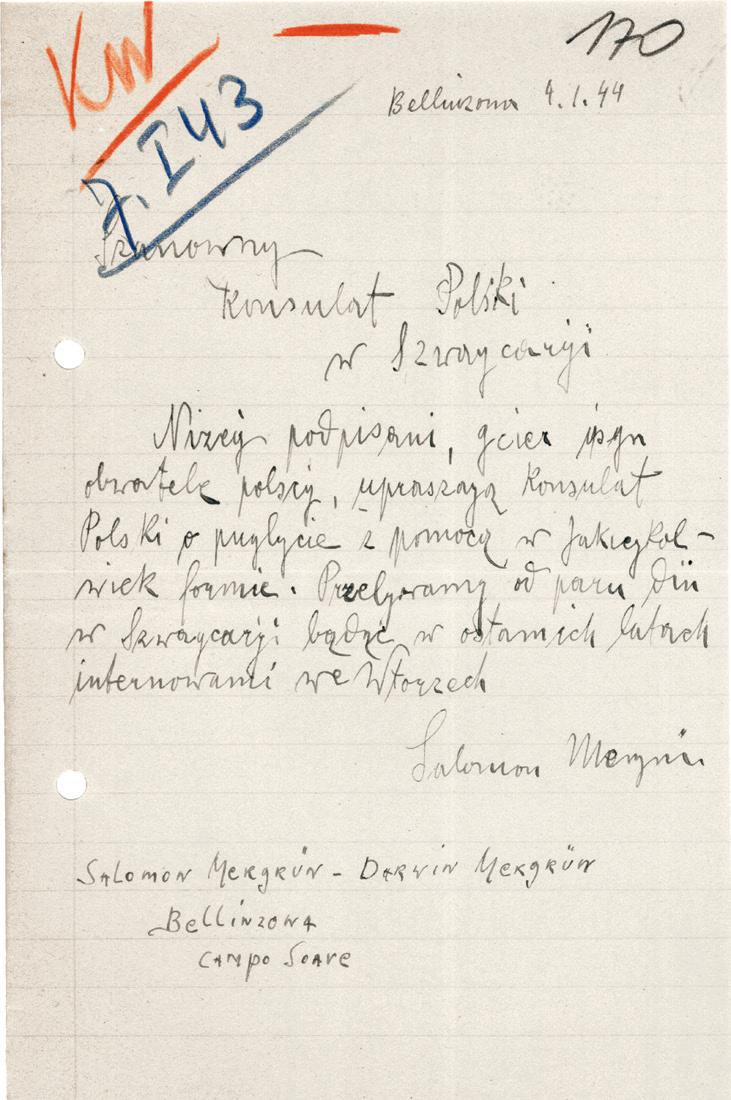 KW
170
Bellinzona 4.1.44
7. I 43
Szanowny
Konsulat Polski
w Szwaycaryi
Niżej podpisani, ojciec i syn
obwatele polscy, upraszają Konsulat
Polski o z pomocą w Jakiejkol-
wiek formie. od paru dni
w Szwaycaryi będąc w ostanich latach
internowami we Włoszech
Salomon Mergrün
Salomon Mergrün - Darwin Mergrün
Bellinzona
Campo Soave